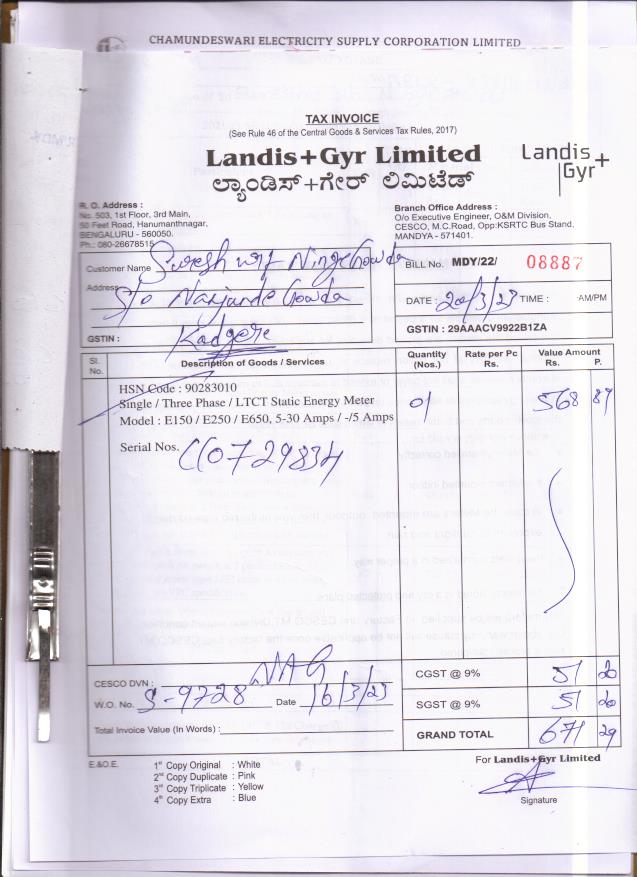 CHAMUNDESWARI ELECTRICITY SUPPLY CORPORATION LIMITED
TAX INVOICE
(See Rule 46 of the Central Goods & Services Tax Rules, 2017)
Landis+Gyr Limited
Landis+
Gyr
ಲ್ಯಾಂಡಿಸ್+ಗೇರ್ ಲಿಮಿಟೆಡ್
R. O. Address :
No. 503, 1st Floor, 3rd Main,
50 Feet Road, Hanumanthnagar,
BENGALURU - 560050.
Ph.: 080-26678515
Branch Office Address :
O/o Executive Engineer, O&M Division,
CESCO, M.C.Road, Opp:KSRTC Bus Stand,
MANDYA - 571401.
Customer Name Suresh
Address S/o Nanjunde Gowda
GSTIN :
BILL No. MDY/22/ 08887
DATE : 20/3/23 TIME : AM/PM
GSTIN : 29AAACV9922B1ZA
Sl. No. Description of Goods / Services Quantity (Nos.) Rate per Pc Rs. Value Amount Rs. P.
HSN Code : 90283010
Single / Three Phase / LTCT Static Energy Meter
Model : E150 / E250 / E650, 5-30 Amps / -/5 Amps 01 568 89
Serial Nos.
CESCO DVN : NAG
W.O. No. S-9728 Date 16/3/23
Total Invoice Value (In Words) :
CGST @ 9% 51 20
SGST @ 9% 51 20
GRAND TOTAL 671 29
E.&O.E.
1st Copy Original : White
2nd Copy Duplicate : Pink
3rd Copy Triplicate : Yellow
4th Copy Extra : Blue
For Landis+Gyr Limited
Signature